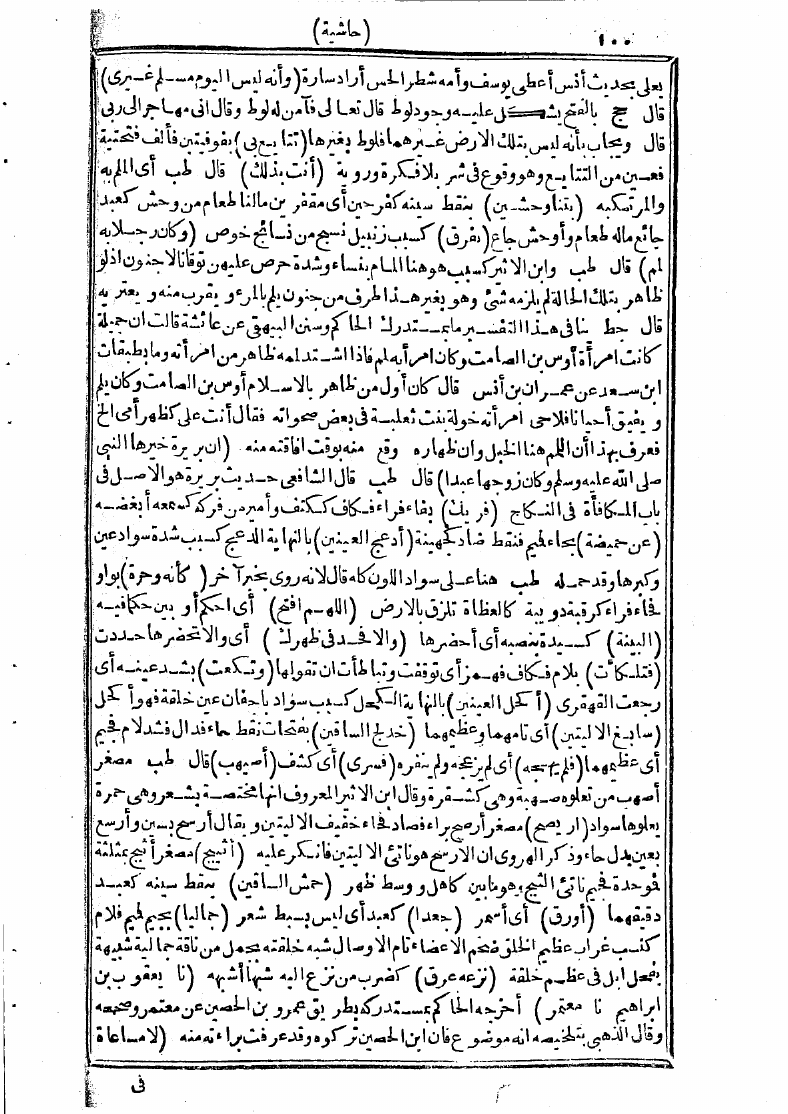 ١٠٠ (حاشية)
يعلى بحديث أنس أعطى يوسف وأمه شطر الحسن أراد سارة (وأنه ليس اليوم مسلم غيرى)
قال ج بالفتح يشكل عليه وجود لوط قال تعالى فآمن له لوط وقال انى مهاجر الى ربى
قال ويجاب بأنه ليس بتلك الارض غيرهما فلوط بغيرها (تتايع بى) بفوقيتين فألف فتحتية
فعين من التتايع وهو وقوع فى شر بلا فكرة وروية (أنت بذلك) قال طب أى الملم به
والمرتكبه (بتنا وحشين) بنقط سينه كفرحين أى مقفرين مالنا طعام من وحش كعبد
جائع ماله طعام وأوحش جاع (بفرق) كسبب زنبيل نسج من نسائج خوص (وكان رجلا به
لم) قال طب وابن الاثير كسبب هو هنا المام بنساء وشدة حرص عليهن توقانا لا جنون اذ لو
ظاهر بتلك الحالة لم يلزمه شئ وهو بغير هذا طرف من جنون يلم بالمرء ويقرب منه ويعتريه
قال حط ينافى هذا التفسير ما بمستدرك الحاكم وسنن البيهقى عن عائشة قالت ان جميلة
كانت امرأة أوس بن الصامت وكان امرأ به لم فاذا اشتد لمه ظاهر من امرأته وما بطبقات
ابن سعد عن عمران بن أنس قال كان أول من ظاهر بالاسلام أوس بن الصامت وكان يلم
ويفيق أحيانا فلاحى امرأته خولة بنت ثعلبة فى بعض صحواته فقال أنت على كظهر أمى الخ
فعرف بهذا أن اللمم هنا الخبل وان ظهاره وقع منه بوقت افاقته منه (ان بريرة خيرها النبى
صلى الله عليه وسلم وكان زوجها عبدا) قال طب قال الشافعى حديث بريرة هو الاصل فى
باب المكافأة فى النكاح (فريك) بفاء فراء فكاف ككتف وأمير من فركه كسمعه أبغضه
(عن حميضة) بحاء فميم فنقط ضاد كجهينة (أدعج العينين) بالنهاية الدعج كسبب شدة سواد عين
وكبرها وقد حمله طب هنا على سواد اللون كله قال لانه روى بخبر آخر (كأنه وحرة) بواو
فحاء فراء كرقبة دويبة كالعظاة تلزق بالارض (اللهم افتح) أى احكم أو بين حكما فيه
(البينة) كسيدة بنصبه أى أحضرها (والا فحد فى ظهرك) أى والا تحضرها حددت
(فتلكأت) بلام فكاف فهمز أى توقفت وتباطأت أن تقولها (وتكعت) بشد عينه أى
رجعت القهقرى (أكحل العينين) بالنهاية الكحل كسبب سواد باجفان عين خلقة فهو أكحل
(سابغ الاليتين) أى تامهما وعظيمهما (خدلج الساقين) بفتحات نقط خاء فدال فشد لام فجيم
أى عظيمهما (فلم يهجه) أى لم يزعجه ولم ينفره (فسرى) أى كشف (أصيهب) قال طب مصغر
أصهب من تعلوه صهبة وهى كشقرة وقال ابن الاثير المعروف انها مختصة بشعر وهى حمرة
يعلوها سواد (أريصح) مصغر أرصح براء فصاد فحاء خفيف الاليتين ويقال أرسح بسين وأرسع
بعين بدل حاء وذكر الهروى ان الارسح هو ناتئ الاليتين فانكر عليه (أثيبج) مصغر أثبج بمثلثة
فوحدة فجيم ناتئ الثبج وهو ما بين كاهل ووسط ظهر (حمش الساقين) بنقط سينه كعبد
دقيقهما (أورق) أى أسمر (جعدا) كعبد أى ليس بسبط شعر (جماليا) بجيم فميم فلام
كنسب غراب عظيم الخلق ضخم الاعضاء تام الاوصال شبه خلقته بجمل من ناقة جمالية شبيهة
بفحل ابل فى عظيم خلقة (نزعه عرق) كضرب من نزع اليه شبها أشبهه (نا يعقوب بن
ابراهيم نا معتمر) أخرجه الحاكم بمستدركه بطريق عمرو بن الحصين عن معتمر وصححه
وقال الذهبى بتلخيصه انه موضوع فان ابن الحصين تركوه وقد عرفت براءته منه (لا مساعاة
فى